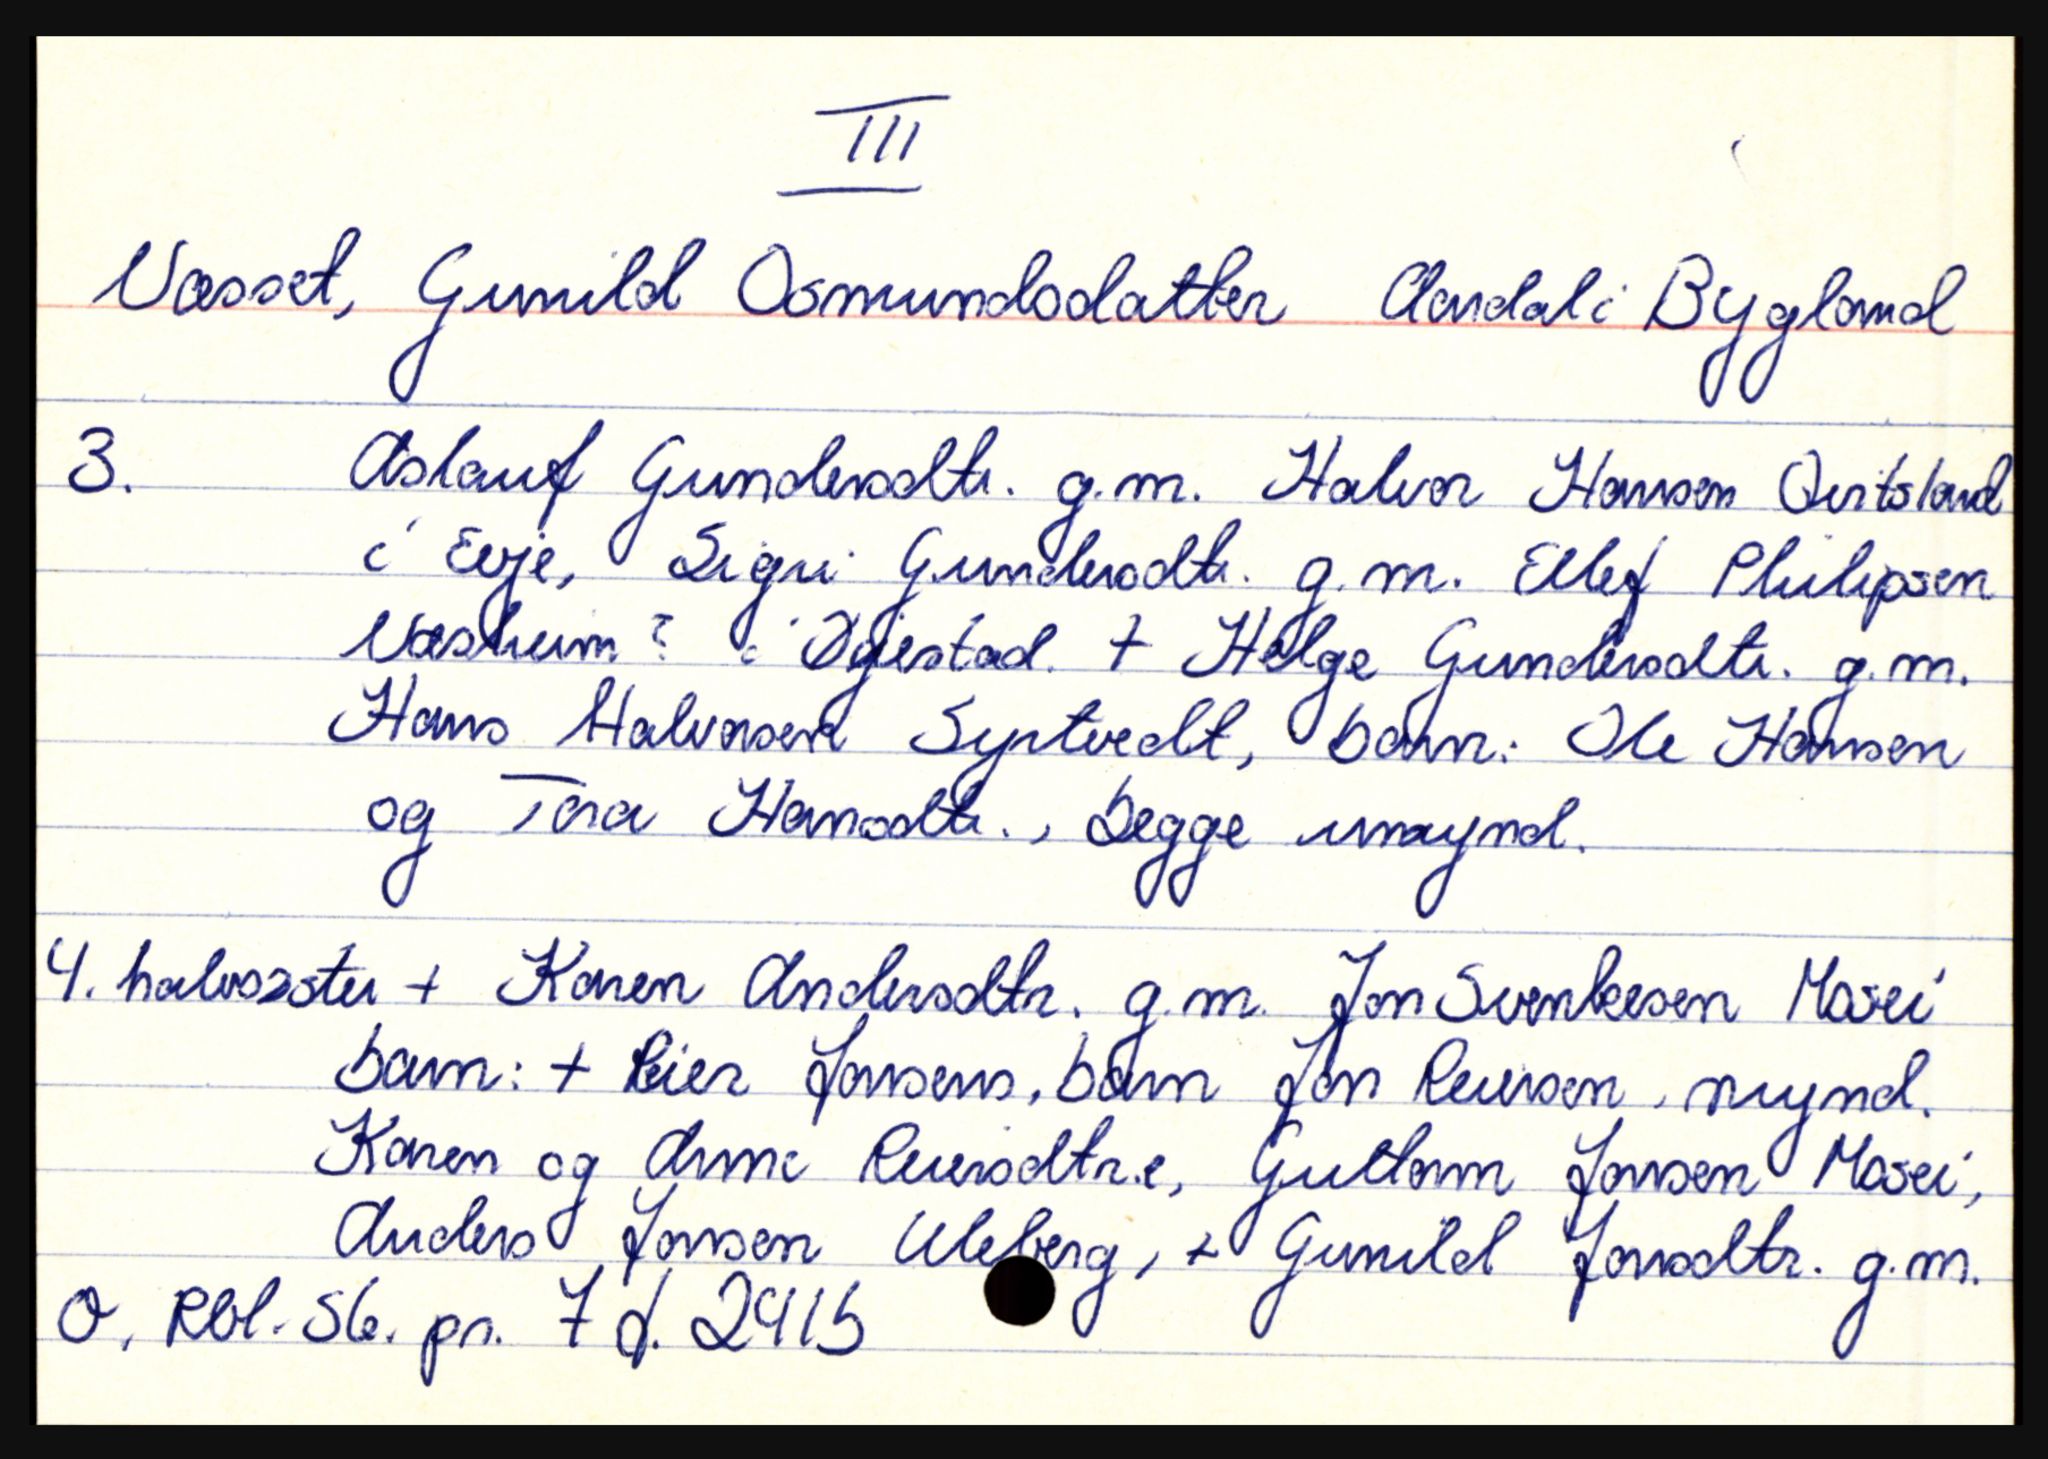 III
Væsset, Gunild Osmundsdatter Aardal i Bygland
3. Aslauf Gundersdtr. g.m. Halvor Hansen
i Evje, Sigri Gundersdtr. g.m. Ellef Philipsen
Væsheim? i Øyestad. + Helge Gundersdtr. g.m.
Hans Halvorsen Syrtvedt, barn: Ole Hansen
og Tora Hansdtr., begge umynd.
4. halvszster + Karen Andersdtr. g.m. Jon Svenkesen Mosei
barn: + Reier Jonsens, barn Jon Reiersen, mynd.
Karen og Anne Reiersdtr.e, Guttorm Jonsen Mosei,
Anders Jonsen Uleberg, + Gunild Jonsdtr. g.m.
O, Rbl. Sk. pr. 7 f. 241b